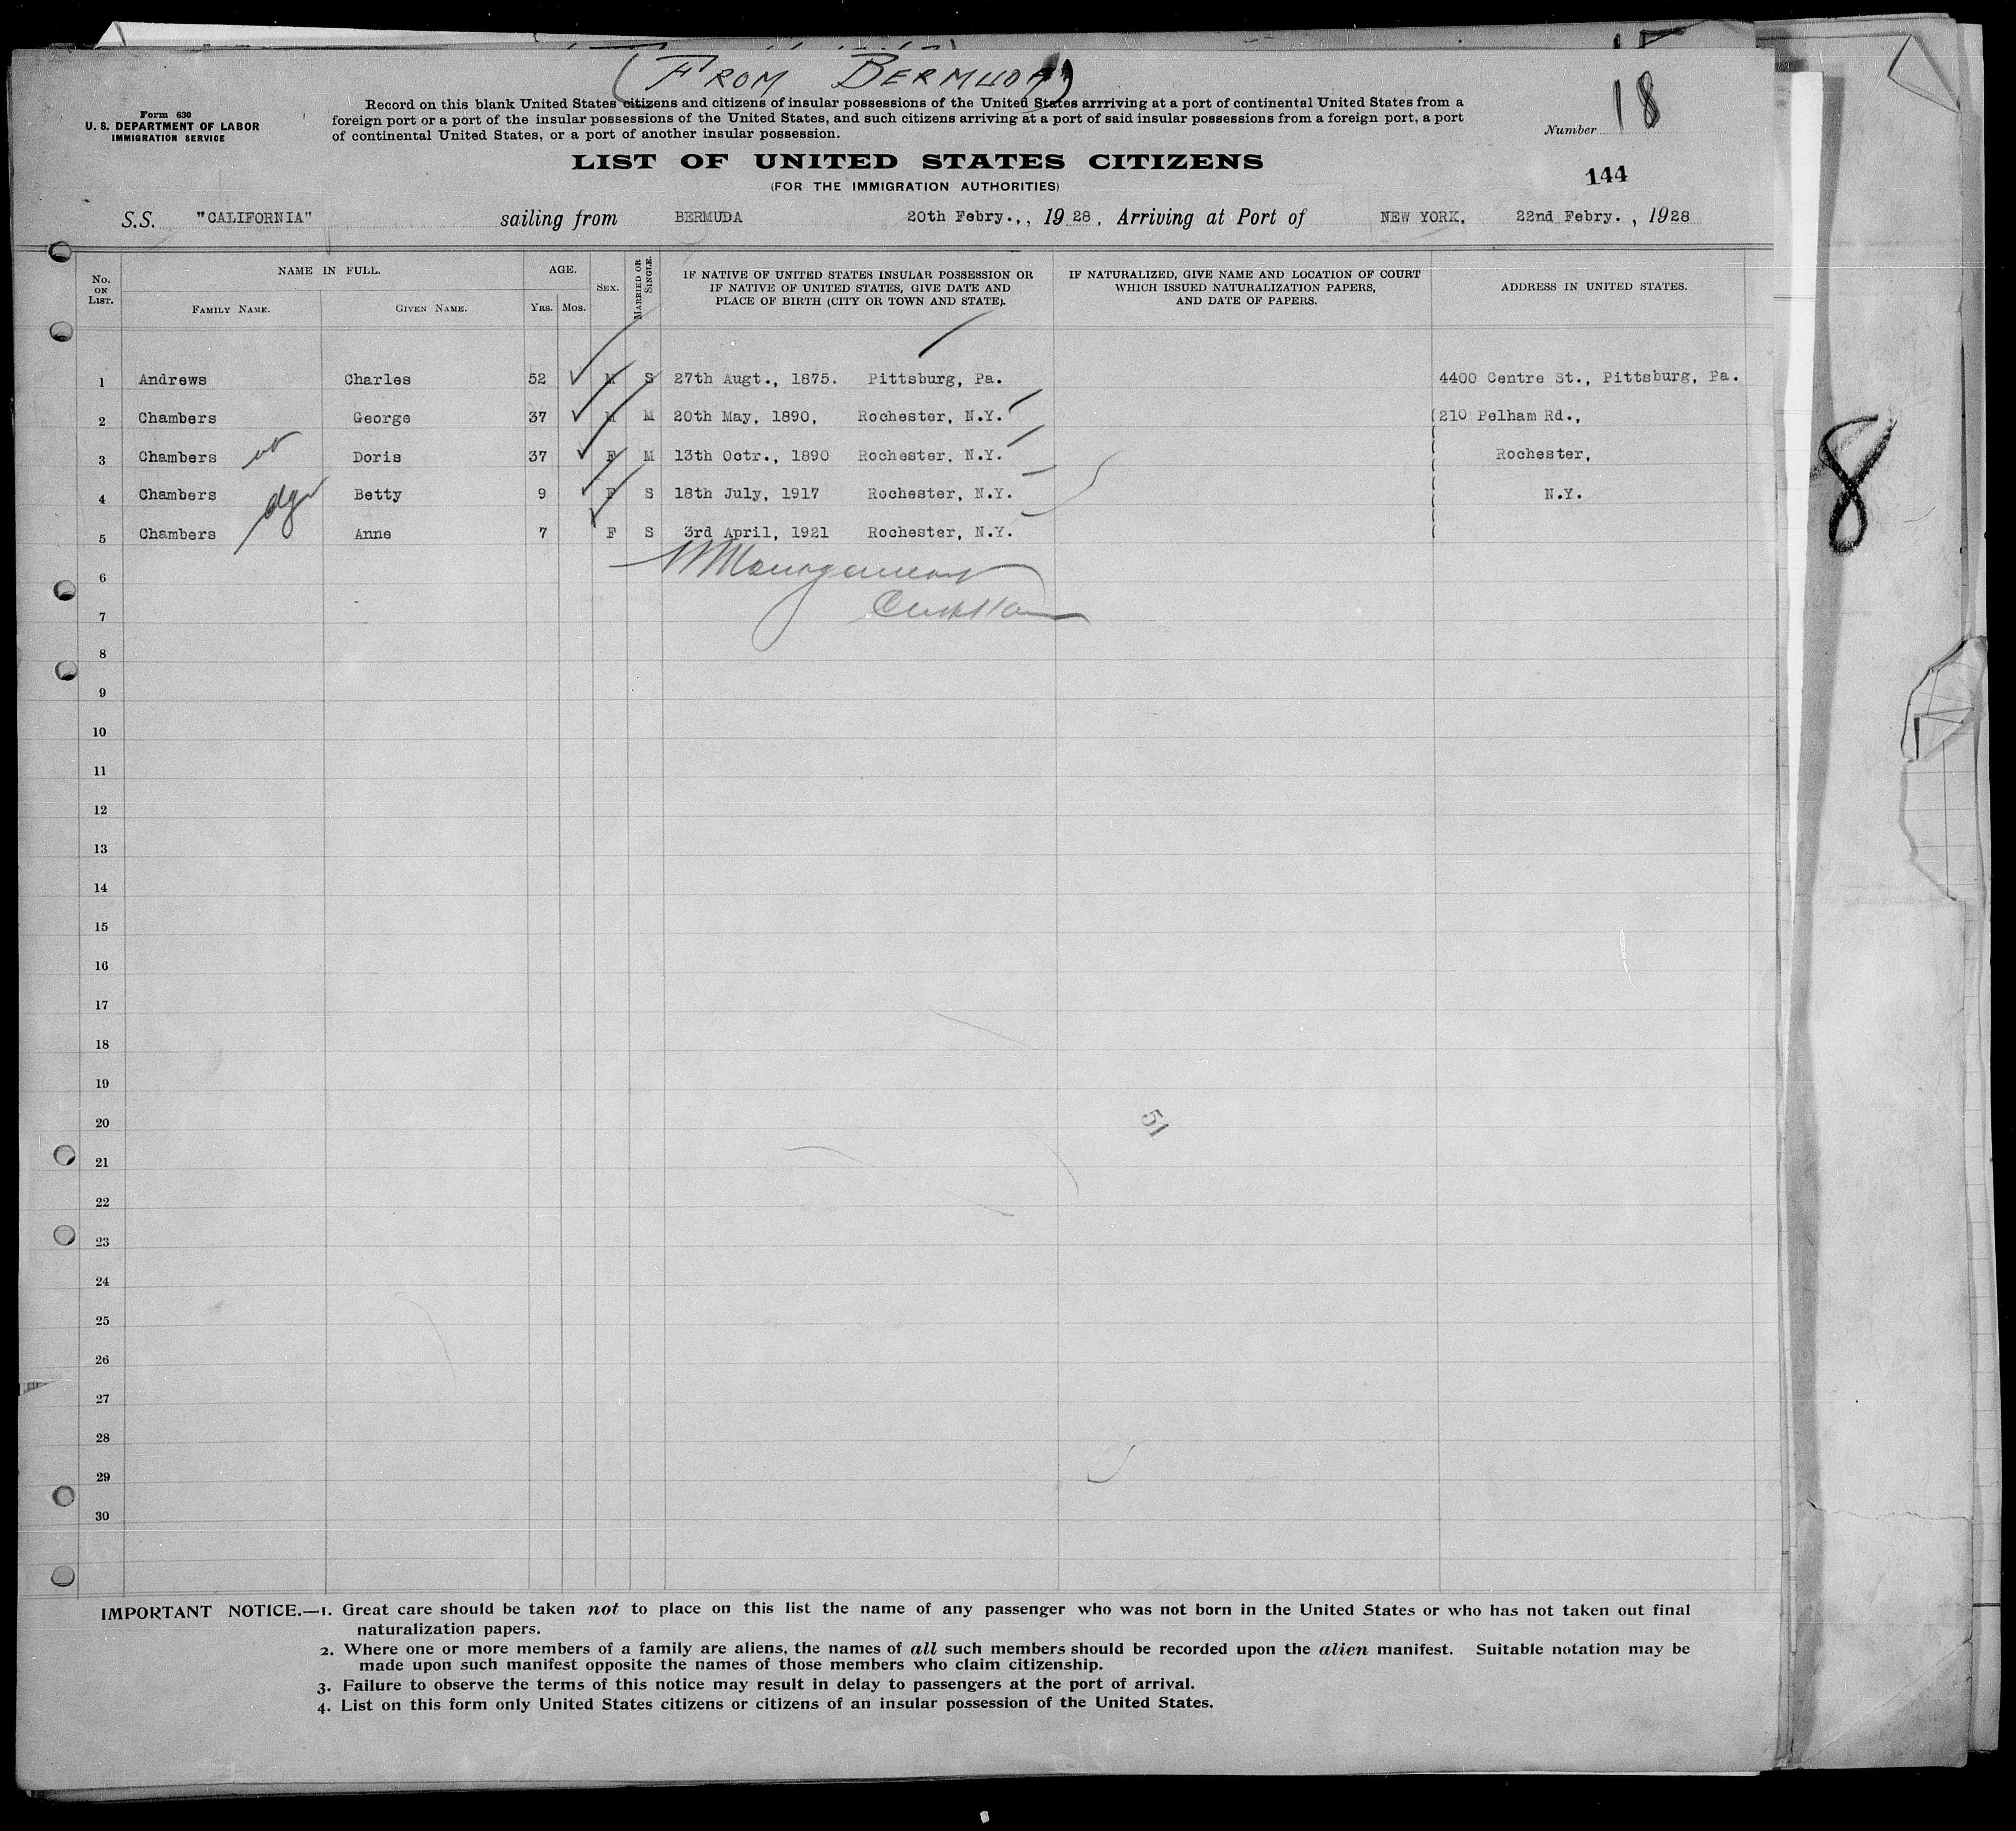 (FROM BERMUDA)
Form 630
U. S. DEPARTMENT OF LABOR
IMMIGRATION SERVICE
Record on this blank United States citizens and citizens of insular possessions of the United States arrriving at a port of continental United States from a
foreign port or a port of the insular possessions of the United States, and such citizens arriving at a port of said insular possessions from a foreign port, a port
of continental United States, or a port of another insular possession.
Number 18
LIST OF UNITED STATES CITIZENS
(FOR THE IMMIGRATION AUTHORITIES)
144
S.S. "CALIFORNIA" sailing from BERMUDA 20th Febry.,, 19 28, Arriving at Port of NEW YORK, 22nd Febry. , 1928
No. ON LIST. NAME IN FULL. AGE. SEX. MARRIED OR SINGLE. IF NATIVE OF UNITED STATES INSULAR POSSESSION OR IF NATIVE OF UNITED STATES, GIVE DATE AND PLACE OF BIRTH (CITY OR TOWN AND STATE). IF NATURALIZED, GIVE NAME AND LOCATION OF COURT WHICH ISSUED NATURALIZATION PAPERS, AND DATE OF PAPERS. ADDRESS IN UNITED STATES.
FAMILY NAME. GIVEN NAME. YRS. MOS.
1 Andrews Charles 52 M S 27th Augt., 1875. Pittsburg, Pa. 4400 Centre St., Pittsburg, Pa.
2 Chambers George 37 M M 20th May, 1890, Rochester, N.Y. (210 Pelham Rd.,
3 Chambers Doris 37 F M 13th Octr., 1890 Rochester, N.Y. Rochester,
4 Chambers Betty 9 F S 18th July, 1917 Rochester, N.Y. N.Y.
5 Chambers Anne 7 F S 3rd April, 1921 Rochester, N.Y.
6
7
8
9
10
11
12
13
14
15
16
17
18
19
20
51
21
22
23
24
25
26
27
28
29
30
8
IMPORTANT NOTICE.—1. Great care should be taken not to place on this list the name of any passenger who was not born in the United States or who has not taken out final
naturalization papers.
2. Where one or more members of a family are aliens, the names of all such members should be recorded upon the alien manifest. Suitable notation may be
made upon such manifest opposite the names of those members who claim citizenship.
3. Failure to observe the terms of this notice may result in delay to passengers at the port of arrival.
4. List on this form only United States citizens or citizens of an insular possession of the United States.